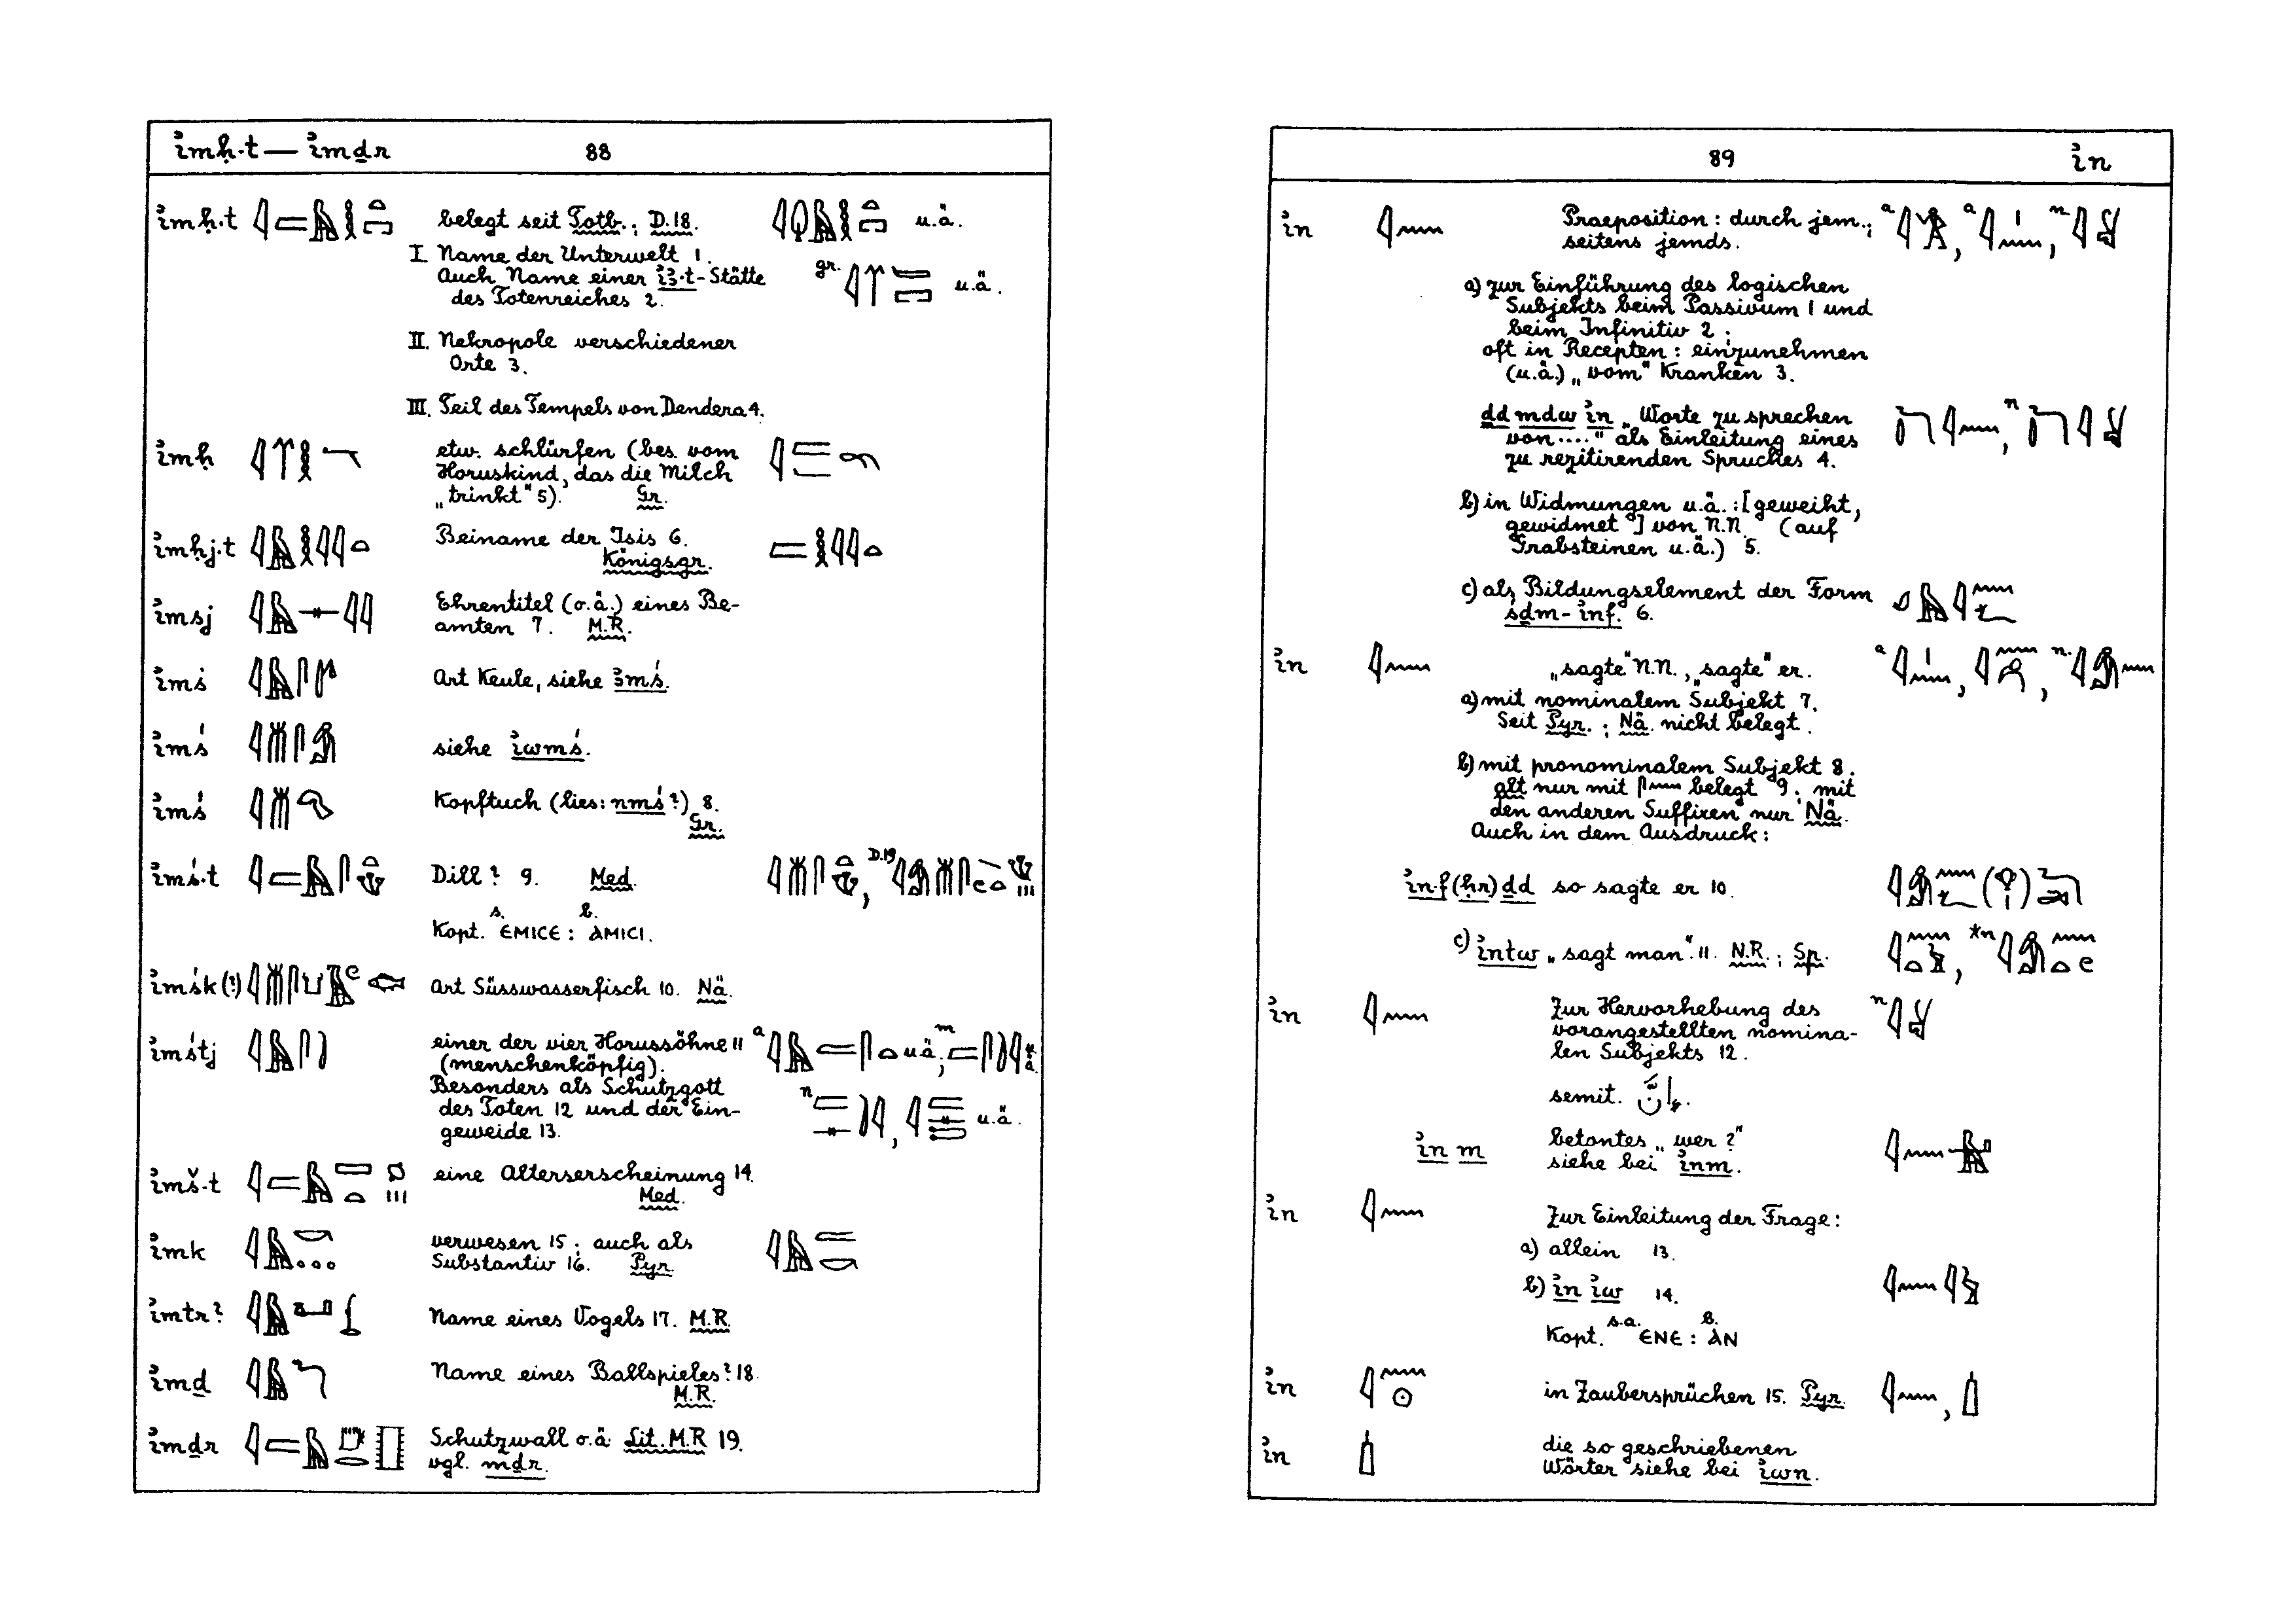 i͗mḥ·t — i͗mḏr 88
i͗mḥ·t belegt seit Totb.; D.18. u.ä.
I. Name der Unterwelt 1.
Auch Name einer i͗ꜣ·t-Stätte gr. u.ä.
des Totenreiches 2.
II. Nekropole verschiedener
Orte 3.
III. Teil des Tempels von Dendera 4.
i͗mḥ etw. schlürfen (bes. vom
Horuskind, das die Milch
„trinkt" 5). Gr.
i͗mḥj·t Beiname der Isis 6.
Königsgr.
i͗msj Ehrentitel (o.ä.) eines Be-
amten 7. M.R.
i͗mś Art Keule, siehe ꜣmś.
i͗mś siehe i͗wmś.
i͗mś Kopftuch (lies: nmś?) 8.
Gr.
i͗mś·t Dill? 9. Med. D.19
s. b.
Kopt. ⲈⲘⲒⲤⲈ : ⲀⲘⲒⲤⲒ.
i͗mśk (?) Art Süsswasserfisch 10. Nä.
i͗mśtj einer der vier Horussöhne 11 a u.ä., m u.ä.
(menschenköpfig).
Besonders als Schutzgott
des Toten 12 und der Ein- n u.ä.
geweide 13.
i͗mš·t eine Alterserscheinung 14.
Med.
i͗mk verwesen 15; auch als
Substantiv 16. Pyr.
i͗mtr? Name eines Vogels 17. M.R.
i͗mḏ Name eines Ballspieles? 18.
M.R.
i͗mḏr Schutzwall o.ä. Lit. M.R 19.
vgl. mḏr.
89 i͗n
i͗n Praeposition: durch jem.; a , a , n
seitens jemds.
a) zur Einführung des logischen
Subjekts beim Passivum 1 und
beim Infinitiv 2;
oft in Recepten: einzunehmen
(u.ä.) „vom" Kranken 3.
ḏd mdw i͗n „Worte zu sprechen , n
von...." als Einleitung eines
zu rezitirenden Spruches 4.
b) in Widmungen u.ä.: [geweiht,
gewidmet] von N.N. (auf
Grabsteinen u.ä.) 5.
c) als Bildungselement der Form
śḏm-i͗nf. 6.
i͗n „sagte" N.N., „sagte" er. a , , n.
a) mit nominalem Subjekt 7.
Seit Pyr.; Nä. nicht belegt.
b) mit pronominalem Subjekt 8.
alt nur mit belegt 9; mit
den anderen Suffixen nur Nä.
Auch in dem Ausdruck:
i͗n·f (ḥr) ḏd so sagte er 10.
c) i͗ntw „sagt man". 11. N.R.; Sp. , *n
i͗n Zur Hervorhebung des n
vorangestellten nomina-
len Subjekts 12.
semit. إنّ.
i͗n m betontes „wer?"
siehe bei i͗nm.
i͗n Zur Einleitung der Frage:
a) allein 13.
b) i͗n i͗w 14.
s.a. b.
Kopt. ⲈⲚⲈ : ⲀⲚ
i͗n in Zaubersprüchen 15. Pyr.
i͗n die so geschriebenen
Wörter siehe bei i͗wn.